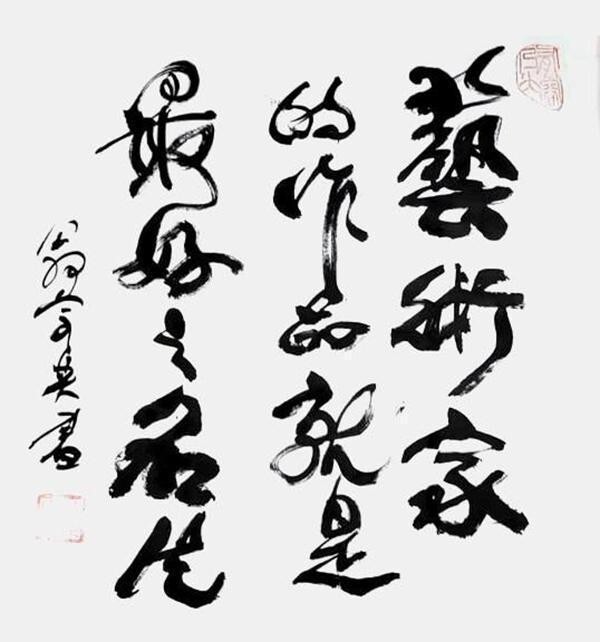 藝術家
的作品就是
最好之名片
翁英書